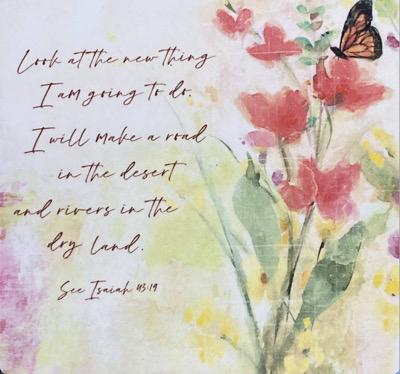 Look at the new thing
I am going to do.
I will make a road
in the desert
and rivers in the
dry land.
See Isaiah 43:19